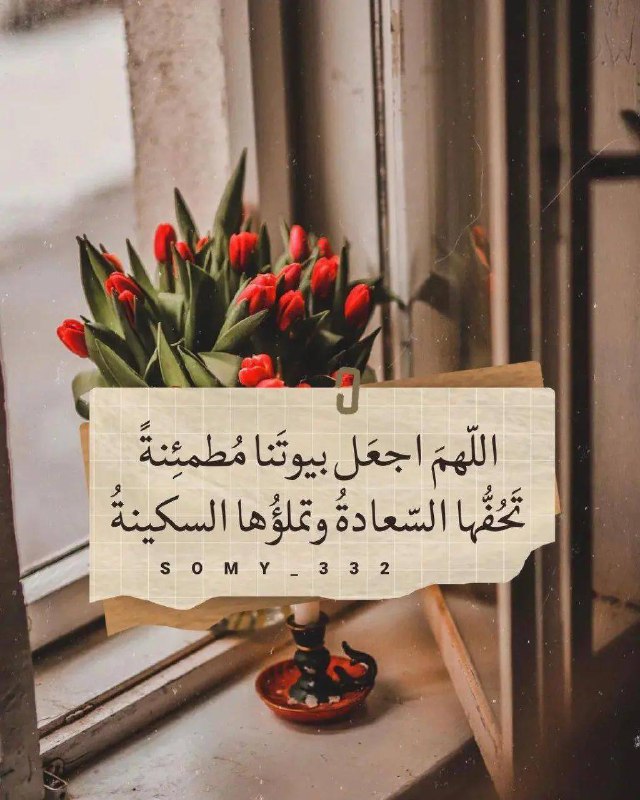 اللّهمَ اجعَل بيوتَنا مُطمئِنةً
تَحُفُّها السّعادةُ وتملؤُها السكينةُ
SOMY_332